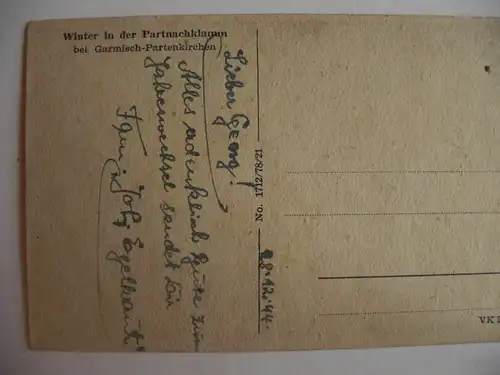 Winter in der Partnachklamm
bei Garmisch-Partenkirchen
Lieber Georg!
Alles erdenklich Gute zum
Jahreswechsel sendet Dir
Fam. Joh. Egelhaut
No. 1712/78/21
28.12.44.
VK